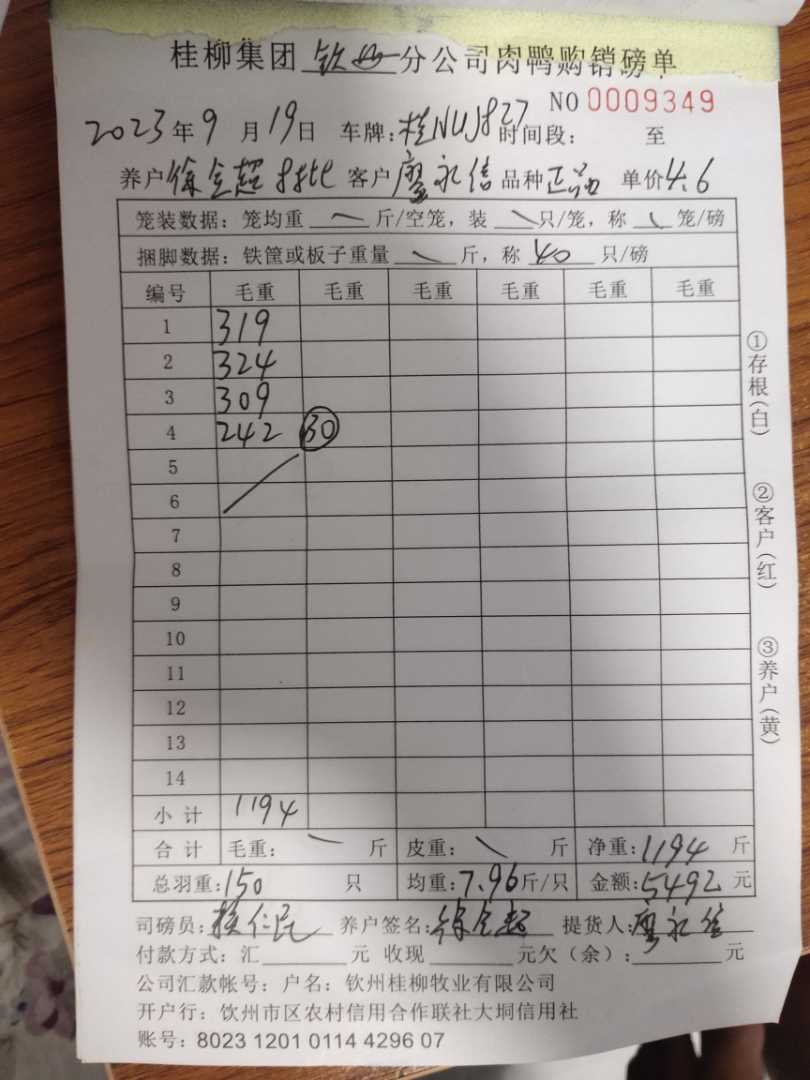 桂柳集团 钦州 分公司肉鸭购销磅单
NO 0009349
2023年9月19日 车牌:桂NUJ827 时间段: 至
养户徐全超 客户廖永信 品种正品 单价4.6
笼装数据:笼均重 斤/空笼,装 只/笼,称 笼/磅
捆脚数据:铁筐或板子重量 斤,称 40 只/磅
编号 毛重 毛重 毛重 毛重 毛重 毛重
1 319
2 324
3 309
4 242 30
5
6
7
8
9
10
11
12
13
14
小计 1194
合计 毛重: 斤 皮重: 斤 净重:1194 斤
总羽重:150 只 均重:7.96斤/只 金额:5492元
司磅员: 养户签名:徐全超 提货人:廖永信
付款方式:汇 元 收现 元欠(余): 元
公司汇款帐号:户名:钦州桂柳牧业有限公司
开户行:饮州市区农村信用合作联社大垌信用社
账号:8023 1201 0114 4296 07
①存根(白)
②客户(红)
③养户(黄)